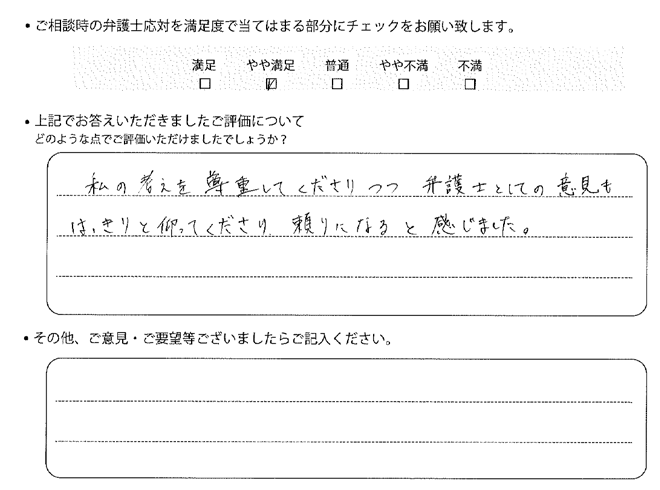 ・ご相談時の弁護士応対を満足度で当てはまる部分にチェックをお願い致します。
満足 やや満足 普通 やや不満 不満
□ ☑ □ □ □
・上記でお答えいただきましたご評価について
どのような点でご評価いただけましたでしょうか？
私の考えを尊重してくださりつつ 弁護士としての意見も
はっきりと仰ってくださり 頼りになると感じました。
・その他、ご意見・ご要望等ございましたらご記入ください。